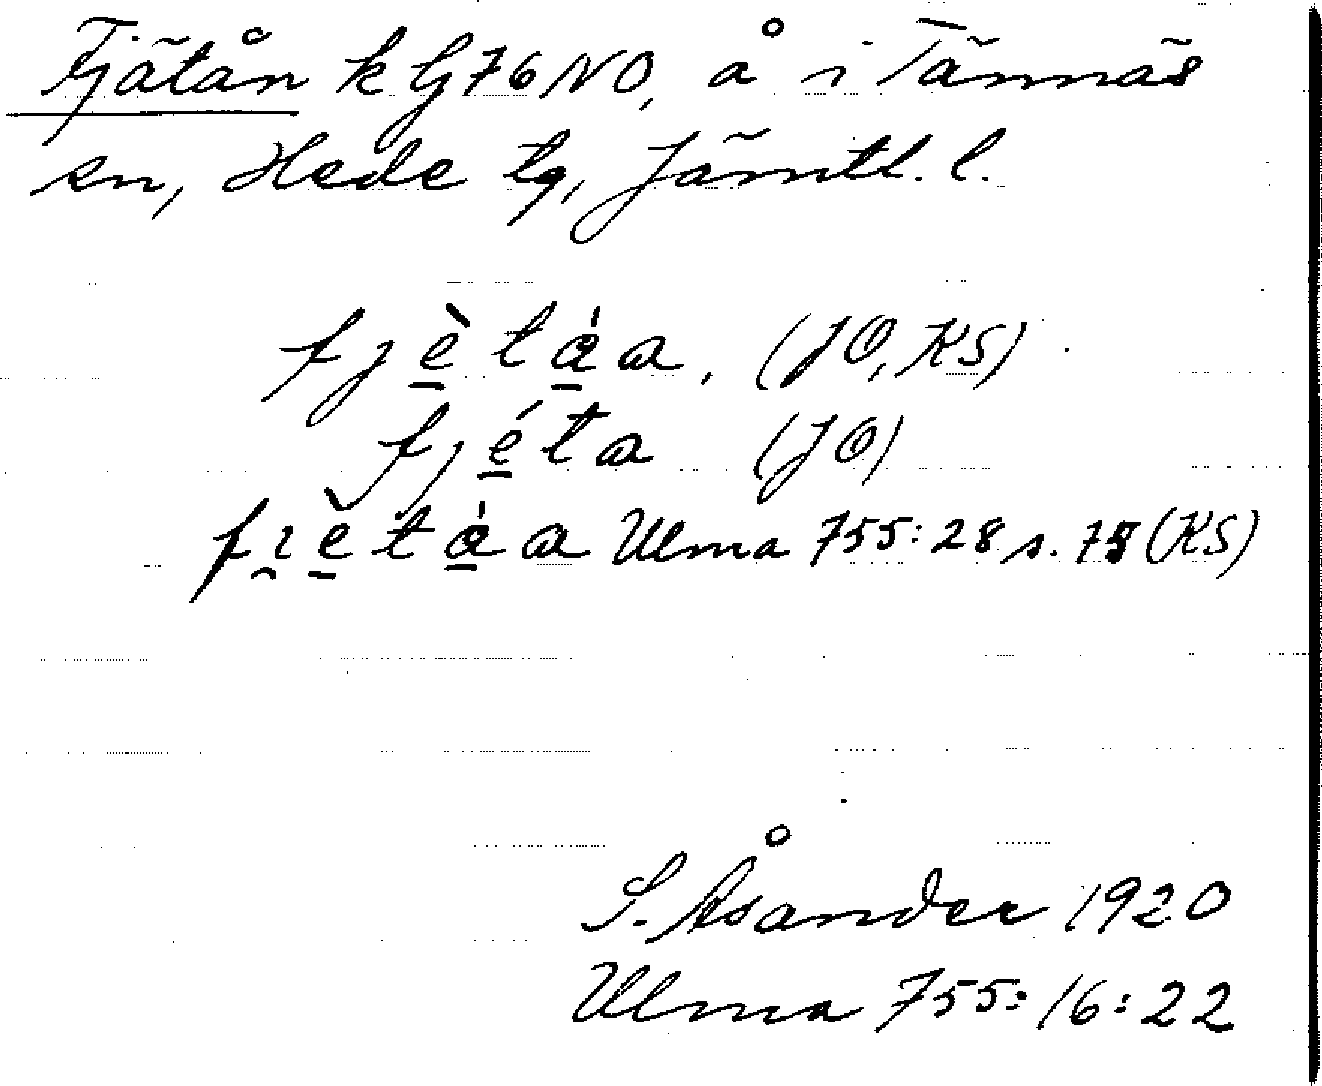 Fjätån k Gj76NO, å i Tännäs
sn, Hede tg, Jämtl. l.
fjèta̍a, (JO, KS)
fjéta (JO)
fi̯èta̍a Ulma 755:28 s. 78 (KS)
S. Åsander 1920
Ulma 755:16:22